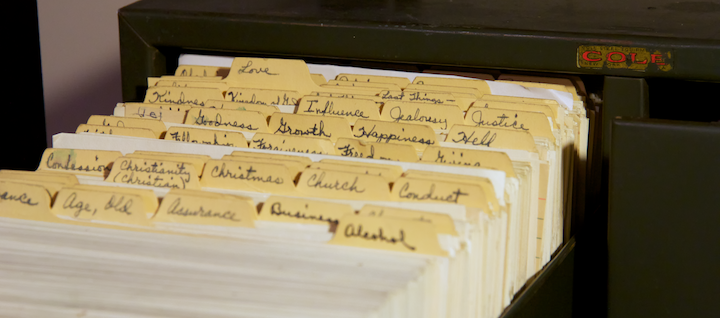 COLE
Love
Last Things
Kindness
Kingdom of
Influence
Jealousy
Justice
Goodness
Growth
Happiness
Hell
Fellowship
Forgiveness
Freedom
Giving
Confession
Christianity
(Christian
Christmas
Church
Conduct
ance
Age, Old
Assurance
Business
Alcohol